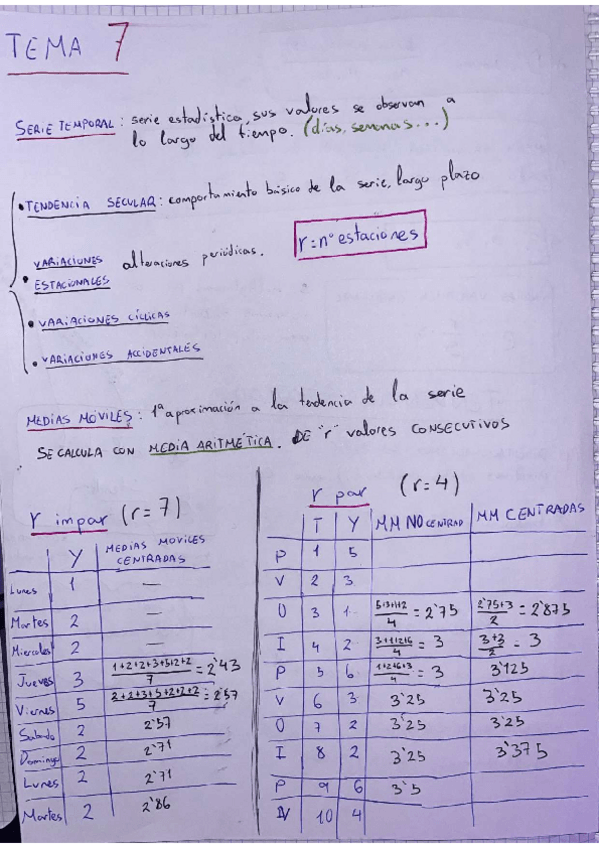 TEMA 7
SERIE TEMPORAL: serie estadística, sus valores se observan a
lo largo del tiempo. (días, semanas...)
• TENDENCIA SECULAR: comportamiento básico de la serie, largo plazo
• VARIACIONES ESTACIONALES alteraciones periódicas.
r = nº estaciones
• VARIACIONES CÍCLICAS
• VARIACIONES ACCIDENTALES
MEDIAS MÓVILES: 1ª aproximación a la tendencia de la serie
SE CALCULA CON MEDIA ARITMÉTICA. DE "r" valores CONSECUTIVOS
r impar (r = 7)
Y MEDIAS MOVILES CENTRADAS
Lunes 1 —
Martes 2 —
Miercoles 2 —
Jueves 3 1+2+2+3+5+2+2/7 = 2'43
Viernes 5 2+2+3+5+2+2+2/7 = 2'57
Sabado 2 2'57
Domingo 2 2'71
Lunes 2 2'71
Martes 2 2'86
r par (r = 4)
T Y MM NO CENTRAD MM CENTRADAS
P 1 5
V 2 3
O 3 1 5+3+1+2/4 = 2'75 2'75+3/2 = 2'875
I 4 2 3+1+2+6/4 = 3 3+3/2 = 3
P 5 6 1+2+6+3/4 = 3 3'125
V 6 3 3'25 3'25
O 7 2 3'25 3'25
I 8 2 3'25 3'375
P 9 6 3'5
V 10 4